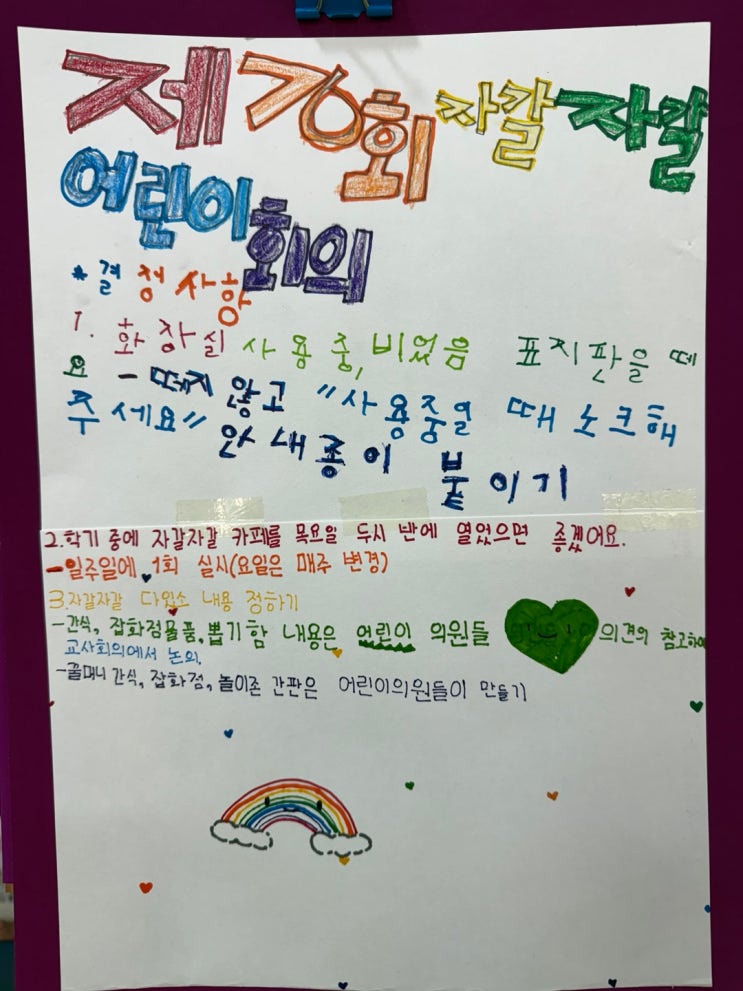 제70회 자갈자갈
어린이회의
* 결정사항
1. 화장실 사용 중, 비었음 표지판을 떼
요 - 떼지 않고 "사용중일 때 노크해
주세요" 안내종이 붙이기
2.학기 중에 자갈자갈 카페를 목요일 두시 반에 열었으면 좋겠어요.
-일주일에 1회 실시(요일은 매주 변경)
3.자갈자갈 다있소 내용 정하기
-간식, 잡화점물품, 뽑기함 내용은 어린이 의원들 의견의 참고하여
교사회의에서 논의.
-꿀매니 간식, 잡화점, 놀이존 간판은 어린이의원들이 만들기